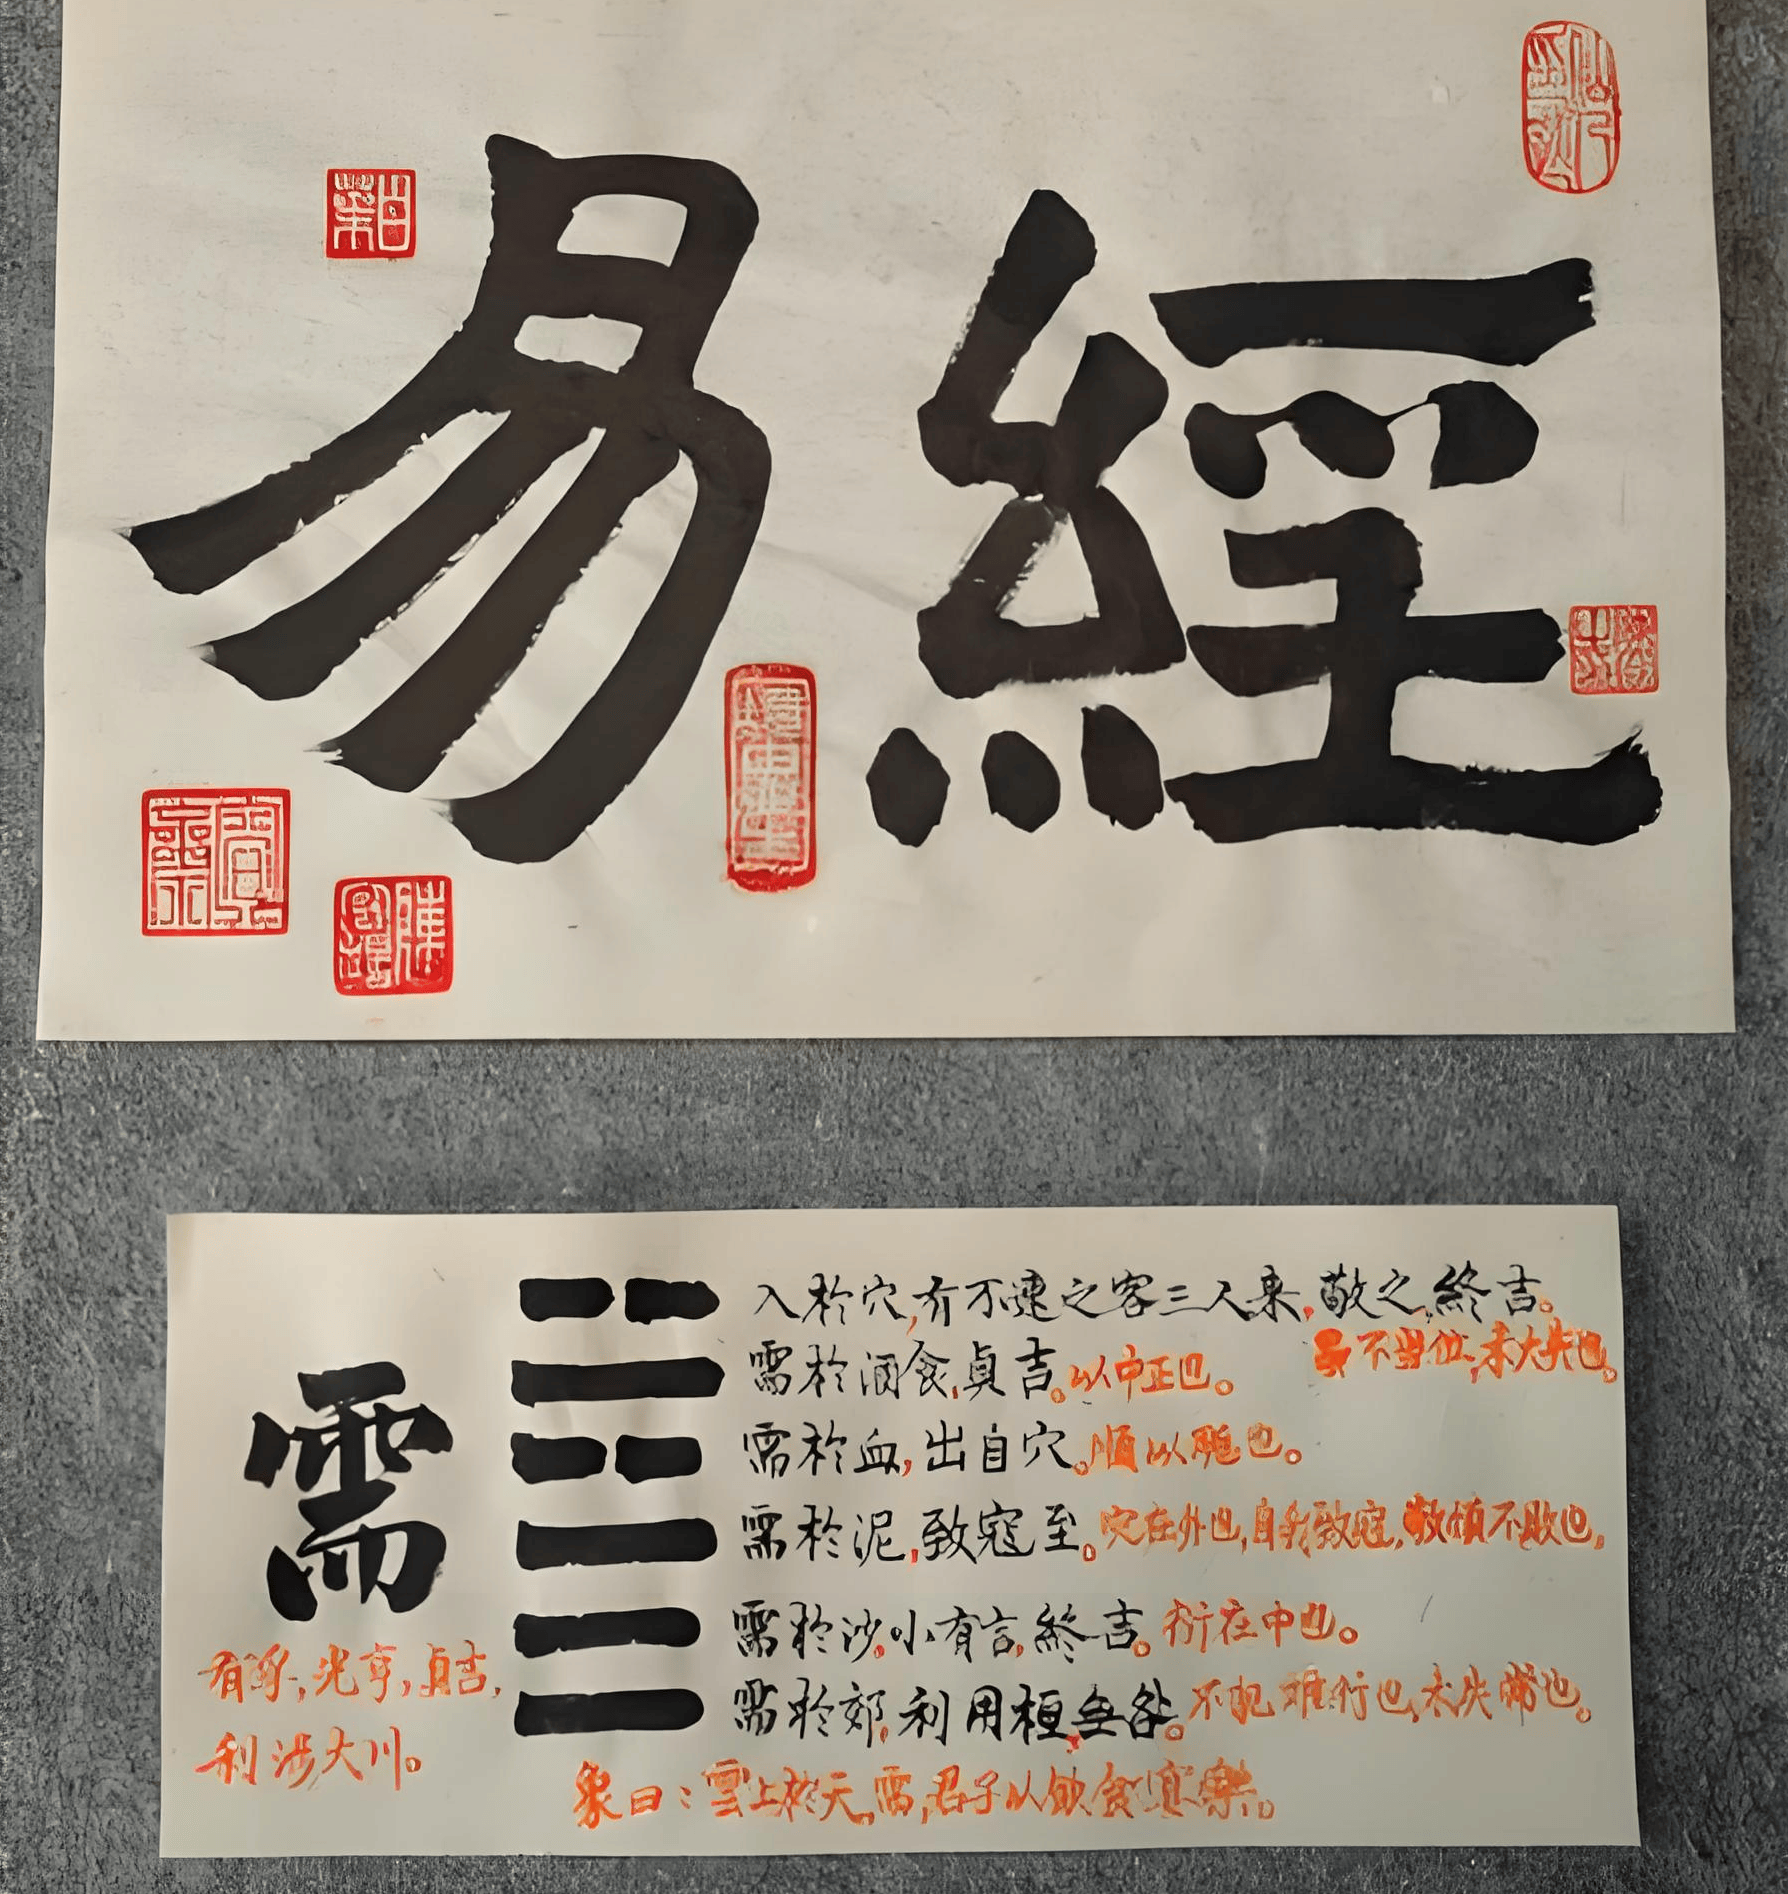 易經
需
有孚,光亨,貞吉,
利涉大川。
入於穴,有不速之客三人来,敬之,終吉。
不當位,未大失也。
需於酒食,貞吉。以中正也。
需於血,出自穴。順以聽也。
需於泥,致寇至。灾在外也,自我致寇,敬慎不敗也,
需於沙,小有言,終吉。衍在中也。
需於郊,利用恒,无咎。不犯難行也,未失常也。
象曰:雲上於天,需,君子以飲食宴樂。